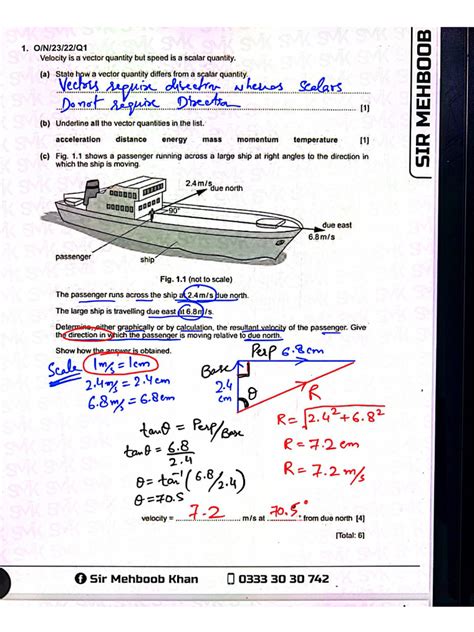 1. O/N/23/22/Q1
Velocity is a vector quantity but speed is a scalar quantity.
(a) State how a vector quantity differs from a scalar quantity.
Vectors require direction whereas Scalars
Do not require Direction [1]
(b) Underline all the vector quantities in the list.
acceleration distance energy mass momentum temperature [1]
(c) Fig. 1.1 shows a passenger running across a large ship at right angles to the direction in
which the ship is moving.
2.4 m/s
due north
90°
due east
6.8 m/s
passenger
ship
Fig. 1.1 (not to scale)
The passenger runs across the ship at 2.4 m/s due north.
The large ship is travelling due east at 6.8 m/s.
Determine, either graphically or by calculation, the resultant velocity of the passenger. Give
the direction in which the passenger is moving relative to due north.
Show how the answer is obtained.
Scale 1m/s = 1cm
2.4 m/s = 2.4 cm
6.8 m/s = 6.8 cm
Perp 6.8cm
Base
2.4
cm
θ
R
R = √2.4² + 6.8²
R = 7.2 cm
R = 7.2 m/s
tanθ = Perp/Base
tanθ = 6.8
2.4
θ = tan⁻¹(6.8/2.4)
θ = 70.5
velocity = 7.2 m/s at 70.5° from due north [4]
[Total: 6]
Sir Mehboob Khan 0333 30 30 742
SIR MEHBOOB